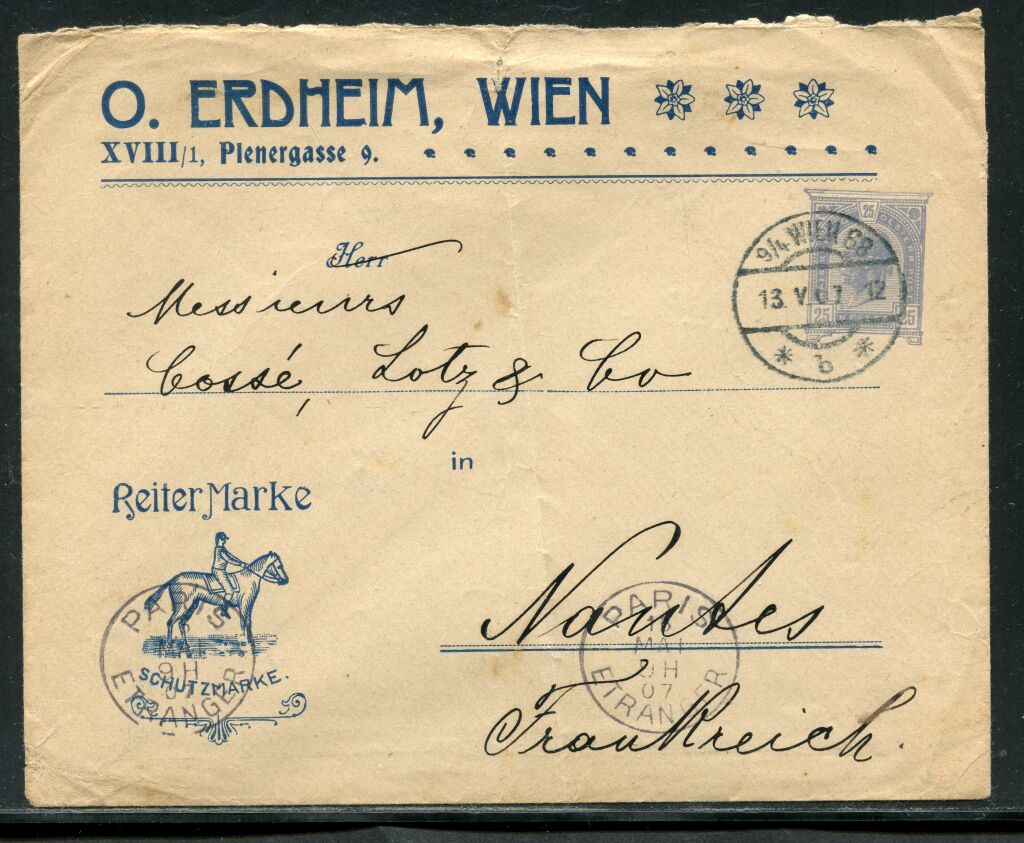 O. ERDHEIM, WIEN
XVIII/1, Plenergasse 9.
25
9/4 WIEN 68
13. V. 07 12
* b *
25 25
Herr
Messieurs
Cossé, Lotz & Co
in
Reiter Marke
Nantes
PARIS
MAI
9H
ETRANGER
SCHUTZMARKE.
PARIS
MAI
9H
07
ETRANGER
Frankreich.